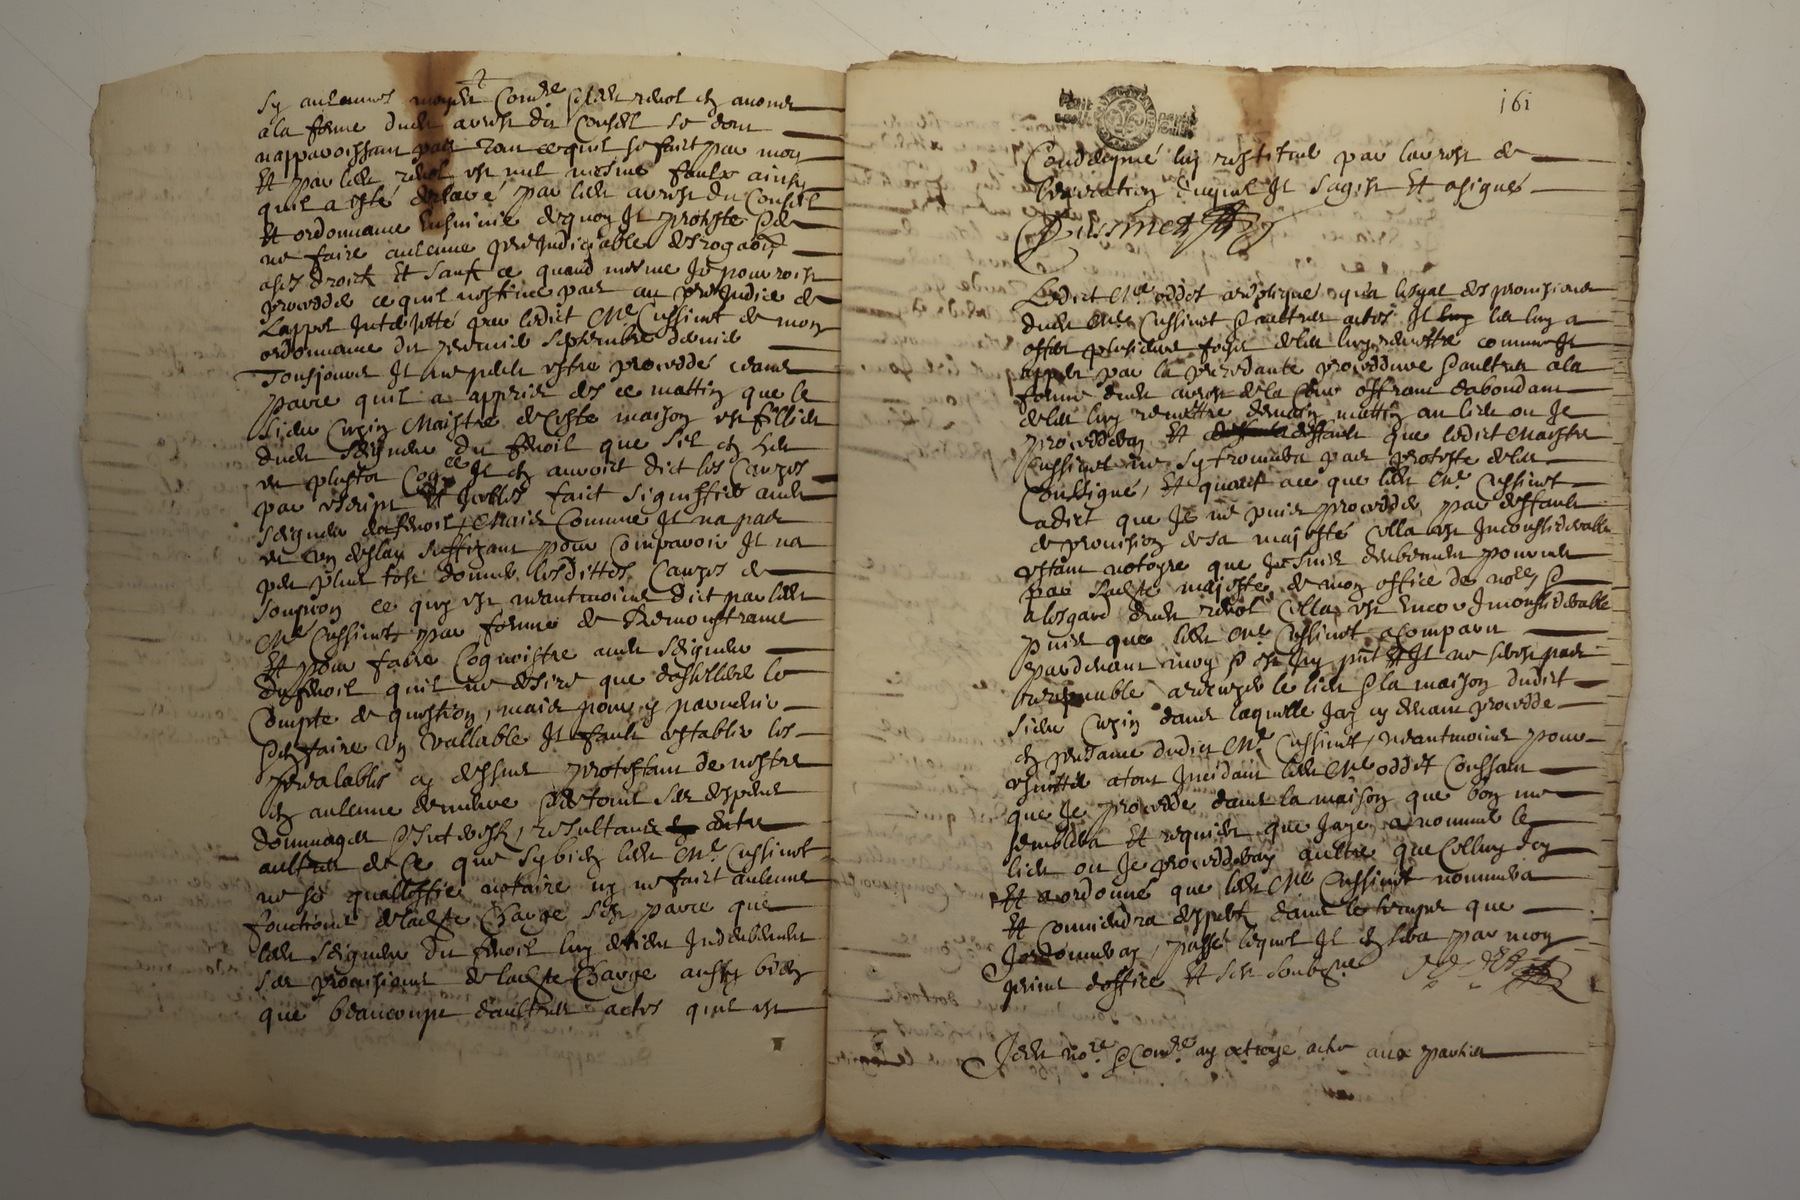 a la forme dudt arrest du Conseil se dont
napparoissant pas
Et par ledt rolet est nul mesme faulx ainsy
quil a esté declaré par ledt arrest du Conseil
Et ordonnance Ensuivie de quoy Il proteste
ne faire aulcune preJudiciable
a ses droict Et sauf ce quand mesme Je pourrois
proceder ce quil nestime pas au preJudice de
Lappel Interjetté par ledict Me Cussinet de mon
ordonnance du premier septembre dernier
Tousjours Il ne peult estre procedé ceans
parce quil a appris des ce mattin que le
Sieur Cuzin Maistre de ceste maison est fillieu
dudt Seigneur du fenoil que sil en heu
eu plustot Cogce Il en auroit dict les Causes
par escript Et Icelles faict signiffier audt
Seigneur du fenoil, Mais Comme Il na pas
eu Ung deslay suffizant pour Comparoir Il na
peu plus tost donner lesdittes Causes de
soupçon ce quy est neantmoins dict par ledt
Me Cussinet par forme de Remonstrance
Et pour faire Cognoistre audt Seigneur
du fenoil quil ne desire que desseller le
Compte de question, mais pour y parvenir
faire Un vallable Il fault establir les
prealables cy dessus protestant de nestre
En aulcune demeure de tous ses despens
dommages Interestz, resultans
aultres de Ce que sy bien ledt Me Cussinet
ne se qualiffie notaire ny ne faict aulcune
fonctions de ladte Charge cest parce que
ledt Seigneur du fenoil luy detient Indeubment
ses provisions de ladte Charge aussy bien
que beaucoupt daultres actes quil est
161
Condemné luy restitué par larrest de
duquel Il sagist Et a signé
Cussinet
Ledict Me oddet a repliqué qua lesgar des provisions
dudt Me Cussinet & aultres actes Il les luy a
offer plusieurs fois de les luy remettre comme Il
appert par la precedante procedure & aultres a la
forme dudt arrest de la Cour offrant dabondant
de les luy remettre demain mattin au lieu ou Je
procederay Et a deffault que ledict Maistre
Cussinet ne sy trouvera pas proteste de les
Consigner, Et quant a ce que ledt Me Cussinet
a dict que Je ne puis proceder par deffault
de provision de sa majesté Cella est Inconsiderable
estant notoyre que Je suis deubement pourveu
par Sadte majesté, de mon office de nore, &
a lesgard dudt rolet Cella est Encor Inconsiderable
puis que ledt Me Cussinet a Comparu
pardevant moy & est Icy pnt Et Il ne seroit pas
recepvable a recuzer le lieu & la maison dudict
Sieur Cuzin dans laquelle Jay cy devant procedde
En presance dudict Me Cussinet, neantmoins pour
esviter a tout Incidant ledt Me oddet Consant
que Je procedde dans la maison que bon me
semblera Et requiert que Jaye a nommer le
lieu ou Je proccederay aultre que Celluy dcy
Et a ordonné que ledt Me Cussinet nommera
Et conviendra despertz dans le temps que
Jordonneray, passé lequel Il en sera par moy
prins doffice Et sest soubzné
oddet
Ledt nore & Comre ay octroyé acte aux parties